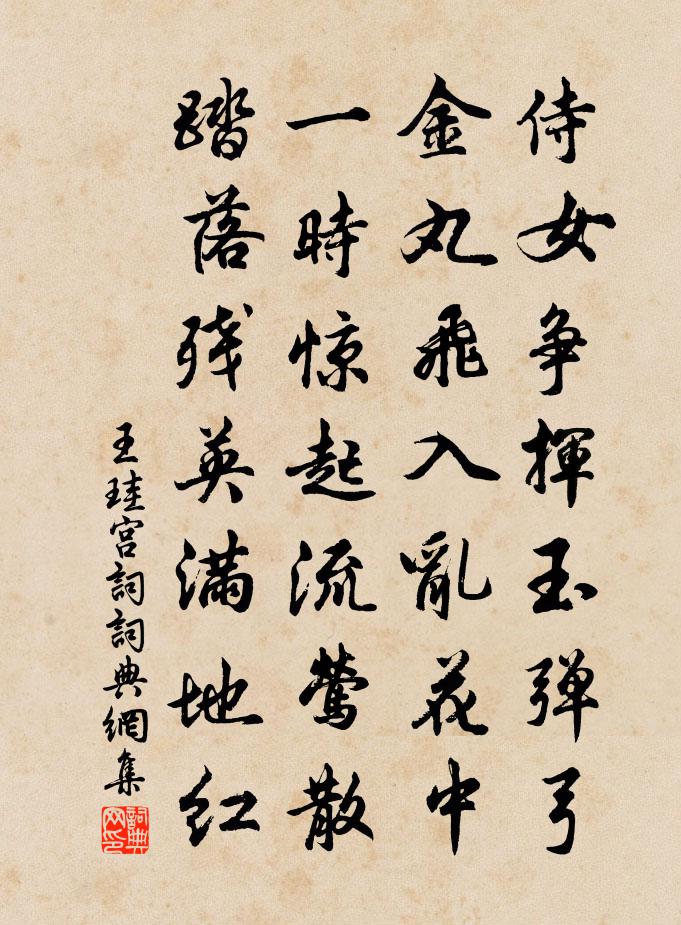 侍女争揮玉弹弓
金丸飛入亂花中
一時惊起流莺散
踏落残英满地红
王珪宫詞詞典網集
詞典网印